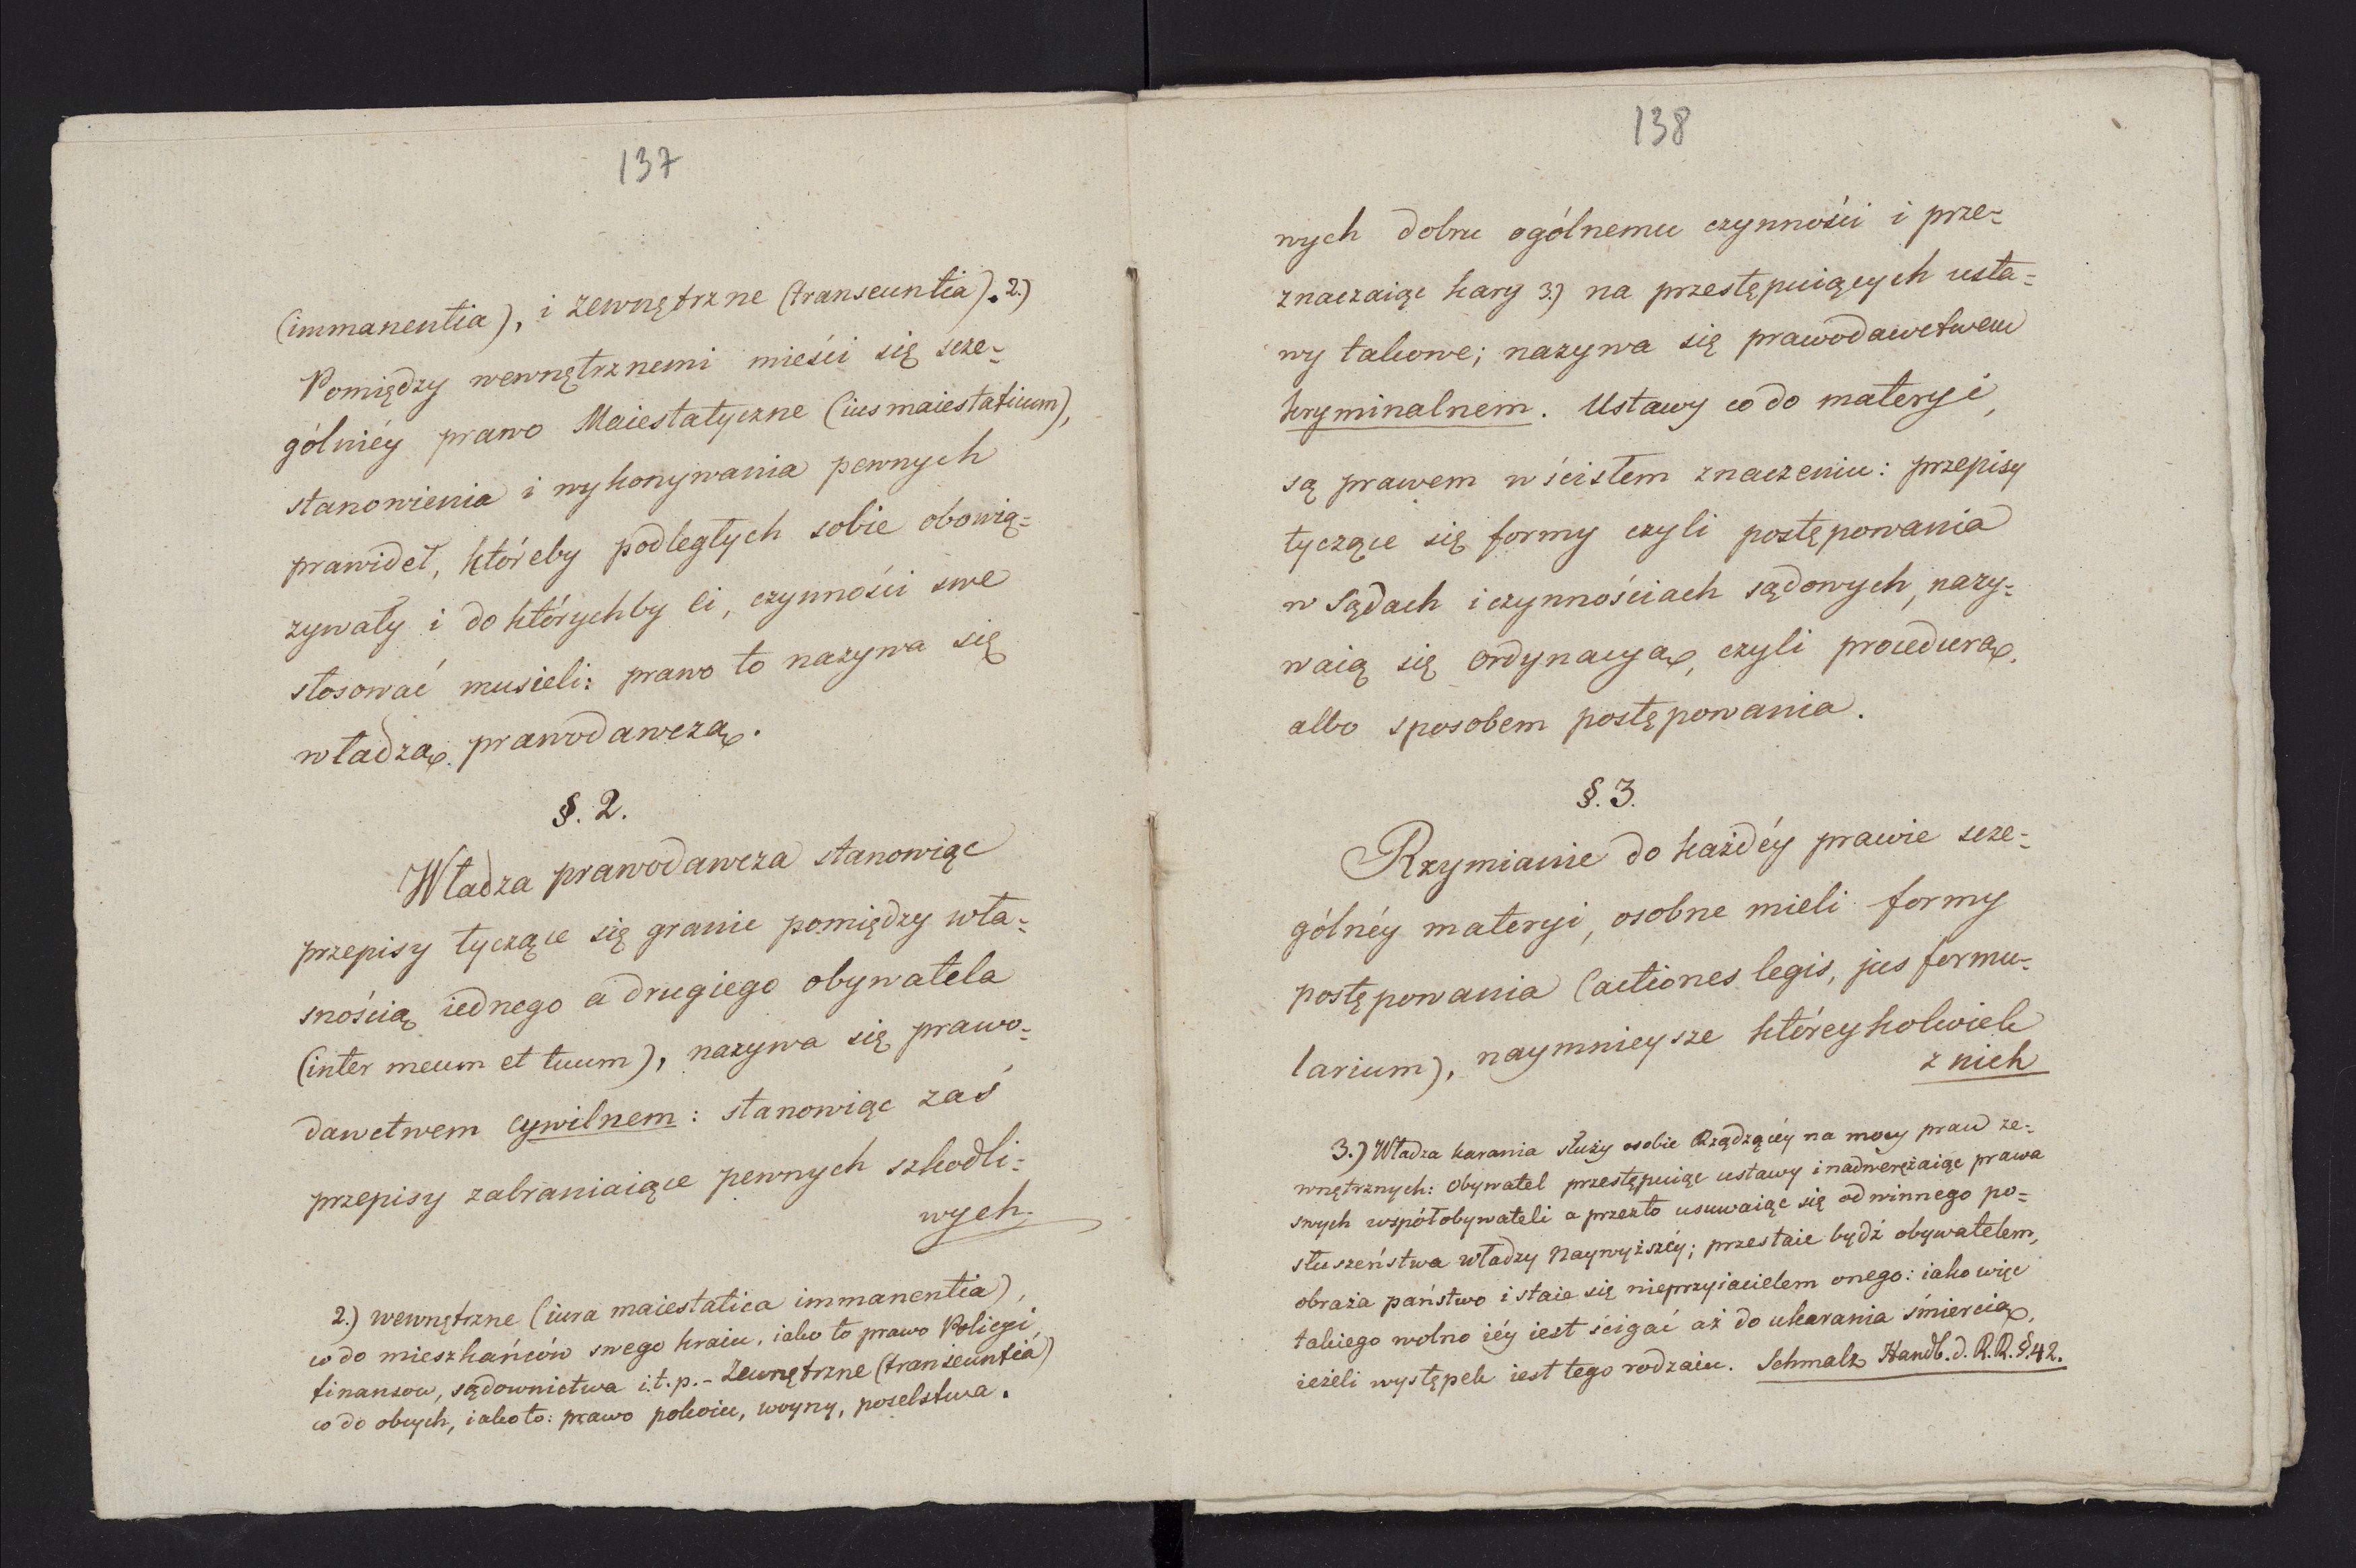 137
(immanentia), i zewnętrzne (transeuntia). 2.)
Pomiędzy wewnętrznemi mieści się szcze=
gólniéy prawo Maiestatyczne (ius maiestaticum),
stanowienia i wykonywania pewnych
prawideł, któreby podległych sobie obowią=
zywały i do którychby ci, czynności swe
stosować musieli: prawo to nazywa się
władzą prawodawczą.
§. 2.
Władza prawodawcza stanowiąc
przepisy tyczące się granic pomiędzy wła=
snością iednego a drugiego obywatela
(inter meum et tuum), nazywa się prawo=
dawctwem cywilnem: stanowiąc zaś
przepisy zabraniaiące pewnych szkodli=
wych
2.) wewnętrzne (iura maiestatica immanentia),
co do mieszkańców swego kraiu, iako to prawo Policyi
finansow, sądownictwa i.t.p.- Zewnętrzne (transeuntia)
co do obcych, iako to: prawo pokoiu, woyny, poselstwa.
138
wych dobru ogólnemu czynności i prze=
znaczaiąc kary 3.) na przestępuiących usta=
wy takowe; nazywa się prawodawctwem
kryminalnem. Ustawy co do materyi,
są prawem w ścisłem znaczeniu: przepisy
tyczące się formy czyli postępowania
w Sądach i czynnościach sądowych, nazy=
waią się ordynacyą, czyli procedurą,
albo sposobem postępowania.
§. 3.
Rzymianie do każdéy prawie szcze=
gólnéy materyi, osobne mieli formy
postępowania (actiones legis, jus formu=
larium), naymnieysze któreykolwiek
z nich
3.) Władza karania służy osobie Rządzącéy na mocy praw ze=
wnętrznych: Obywatel przestępuiąc ustawy i nadwerężaiąc prawa
swych współobywateli a przezto usuwaiąc się od winnego po=
słuszeństwa władzy Naywyższéy; przestaie bydź obywatelem,
obraża państwo i staie się nieprzyiacielem onego: iako więc
takiego wolno iéy iest ścigać aż do ukarania śmiercią,
ieżeli występek iest tego rodzaiu. Schmalz Handb. d. R. R. §. 42.